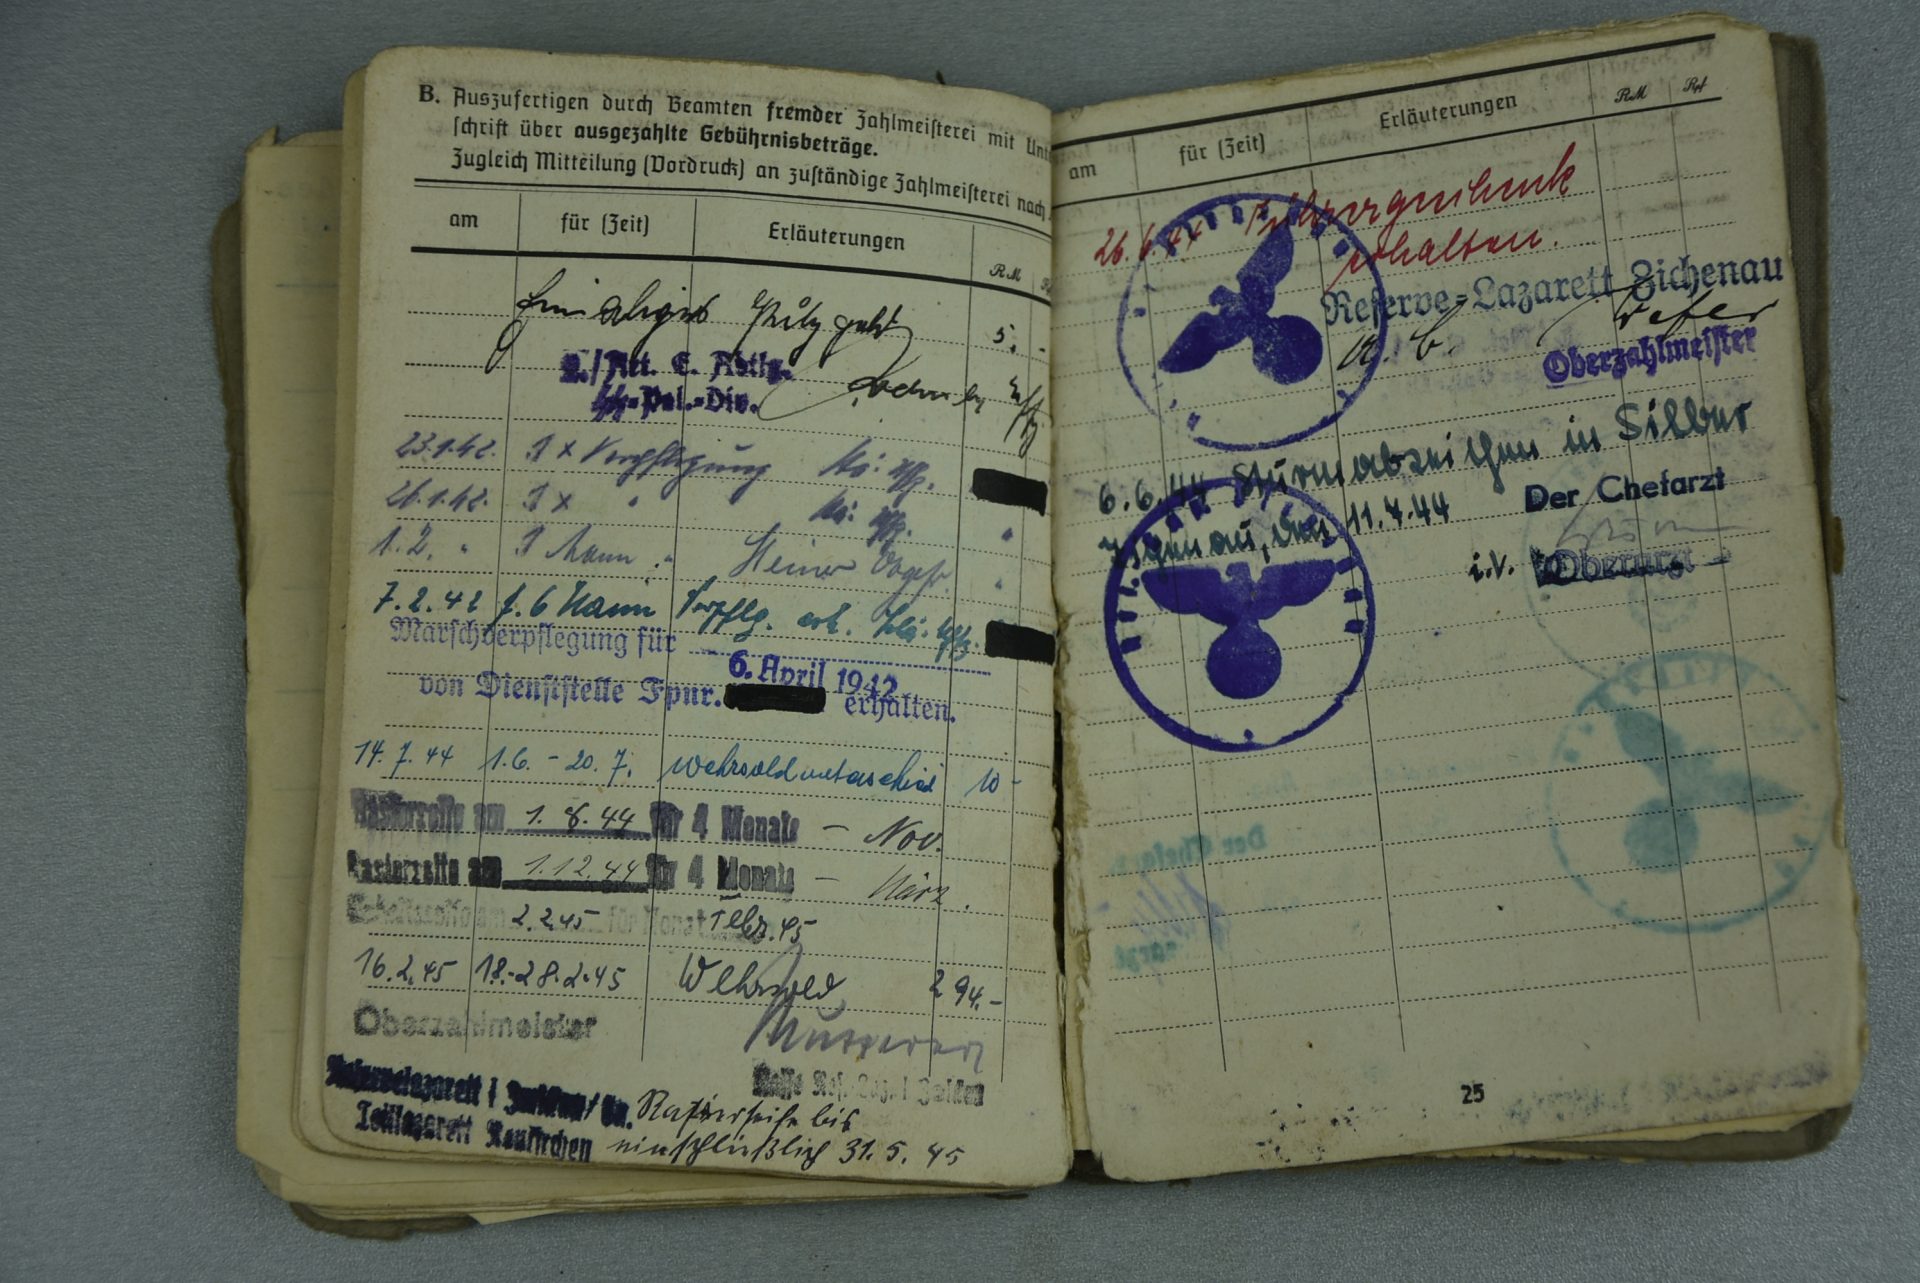 B. Auszufertigen durch Beamten fremder Zahlmeisterei mit Unt
schrift über ausgezahlte Gebührnisbeträge.
Zugleich Mitteilung (Vordruck) an zuständige Zahlmeisterei nach
am für (Zeit) Erläuterungen
RM
Einmaliges Putzgeld 5.-
./Art. E. Abtlg.
SS-Pol.-Div.
23.1.42. Verpflegung
26.1.42. "
1.2. " Mann "
7.2.42 f. 6 Mann Verpflg. erh.
Marschverpflegung für
6. April 1942
von Dienststelle Fpnr. erhalten.
14.7.44 1.6. - 20.7. Wehrsold 10-
Rasierseife am 1.8.44 für 4 Monate – Nov.
Rasierseife am 1.12.44 für 4 Monate – März.
am 2.2.45 für Monat Febr. 45
16.2.45 18.-28.2.45 Wehrsold 294.-
Oberzahlmeister
Reservelazarett
Teillazarett Neukirchen
Rasierseife bis
einschließlich 31.5.45
am für (Zeit) Erläuterungen RM Rpf
26.6.44 Führergeschenk
erhalten.
Reserve-Lazarett Zichenau
Oberzahlmeister
6.6.44 Sturmabzeichen in Silber
Zichenau, den 11.4.44 Der Chefarzt
i.V. Oberarzt
25